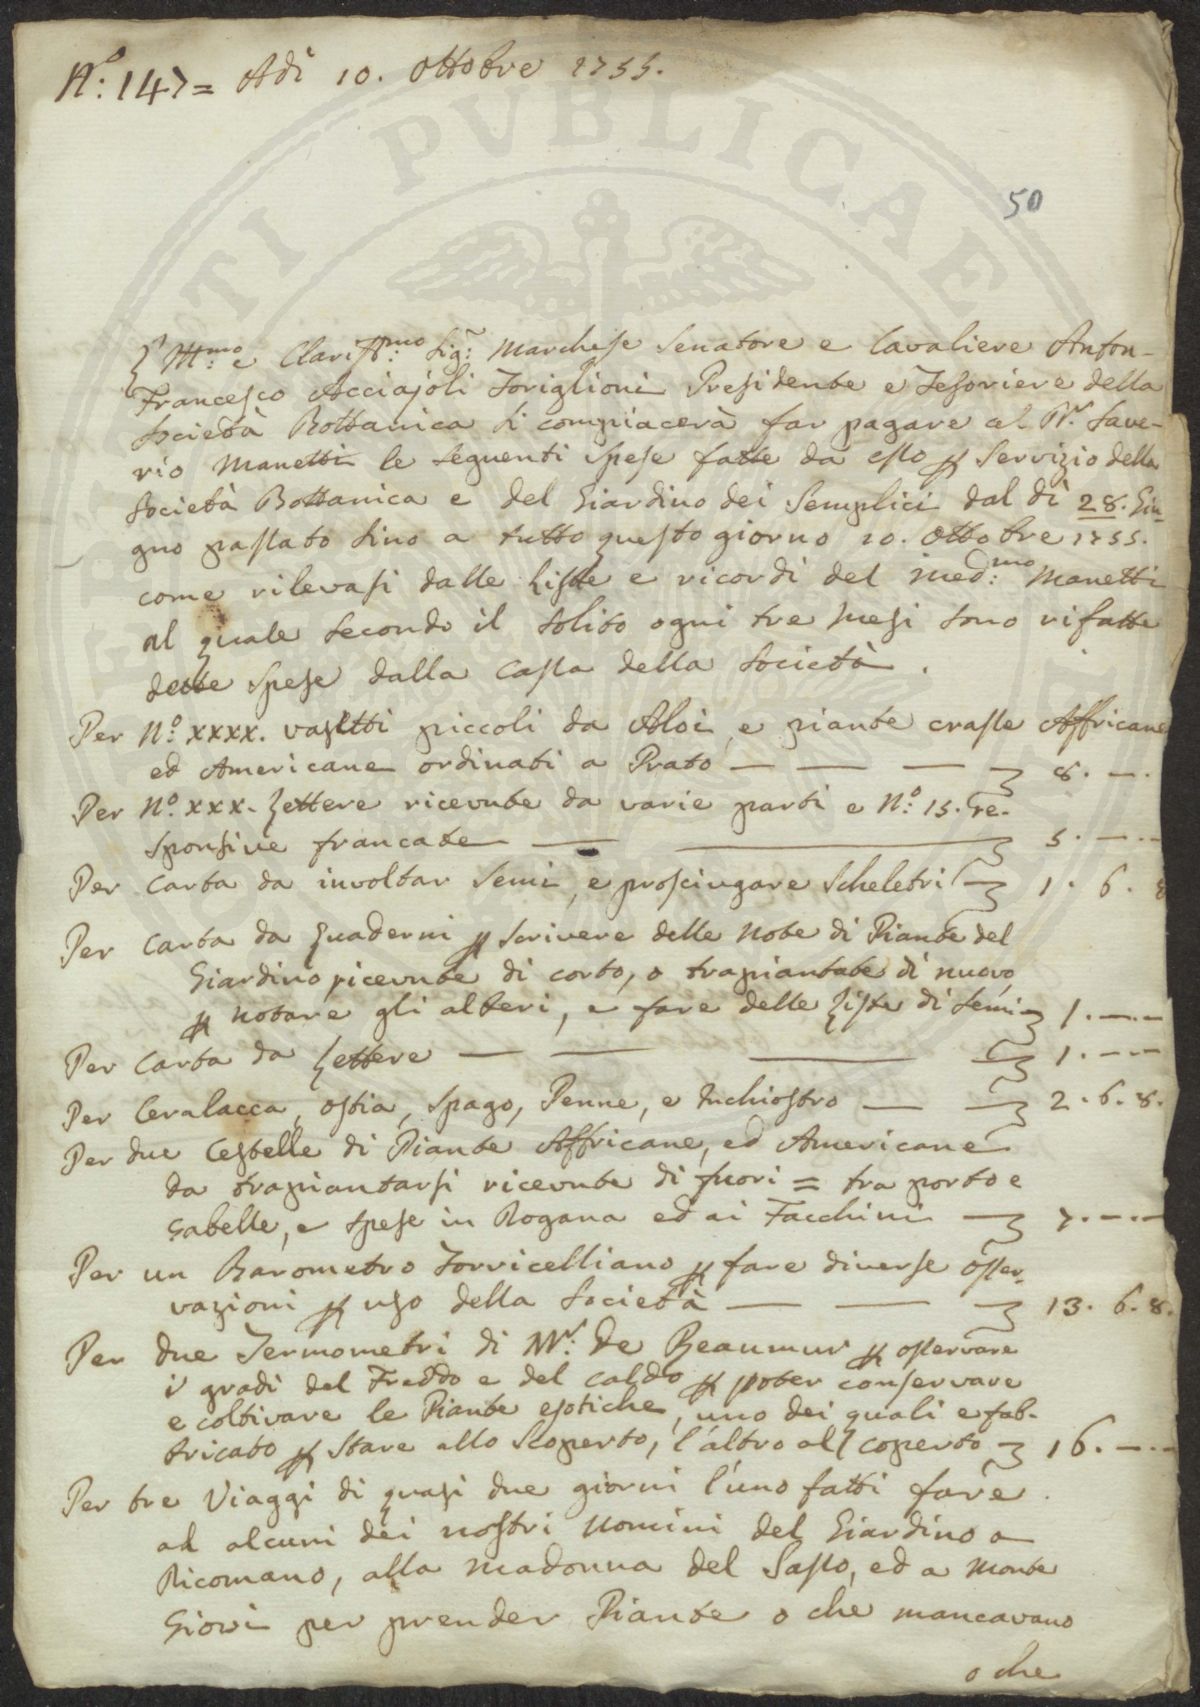 N.º: 147= Adì 10. Ottobre 1755.
50
L'Ill.mo: e Clariss.mo: Sig.: Marchese Senatore e Cavaliere Anton-
Francesco Acciajoli Toriglioni Presidente e Tesoriere della
Società Bottanica si compiacerà far pagare al Dr. Save-
rio Manetti le seguenti Spese fatte da esso p Servizio della
Società Bottanica e del Giardino dei Semplici dal dì 28. Giu-
gno passato sino a tutto questo giorno 10. Ottobre 1755.
come rilevasi dalle Liste e ricordi del med:mo Manetti
al quale secondo il solito ogni tre Mesi sono rifatte
dette Spese dalla Cassa della Società.
Per N.º xxxx. vasetti piccoli da Aloi, e piante crasse Affricane
ed Americane ordinati a Prato — — — 8. —.
Per N.º xxx. Lettere ricevute da varie parti e N.º: 15. re-
sponsive francate — — 5. — —
Per Carta da involtar Semi, e prosciugare Scheletri 1. 6. 8
Per Carta da Quaderni p scrivere delle Note di Piante del
Giardino ricevute di corto, o trapiantate di nuovo,
p notare gli alberi, e fare delle Liste di semi 1. — —
Per Carta da Lettere — — — 1. — —
Per Ceralacca, ostia, Spago, Penne, e Inchiostro — 2. 6. 8.
Per due Cestelle di Piante Affricane, ed Americane
da trapiantarsi ricevute di fuori = tra porto e
Gabelle, e spese in Dogana ed ai Facchini 7. — —
Per un Barometro Torricelliano p fare diverse osser-
vazioni p uso della Società — — 13. 6. 8.
Per due Termometri di Mr. De Reaumur p osservare
i gradi del Freddo e del caldo p poter conservare
e coltivare le Piante esotiche, uno dei quali e fab-
tricato p Stare allo Scoperto, l'altro al coperto 16. — —
Per tre Viaggi di quasi due giorni l'uno fatti fare
ad alcuni dei nostri Uomini del Giardino a
Ricomano, alla Madonna del Sasso, ed a Monte
Giovi per prender Piante o che mancavano
o che